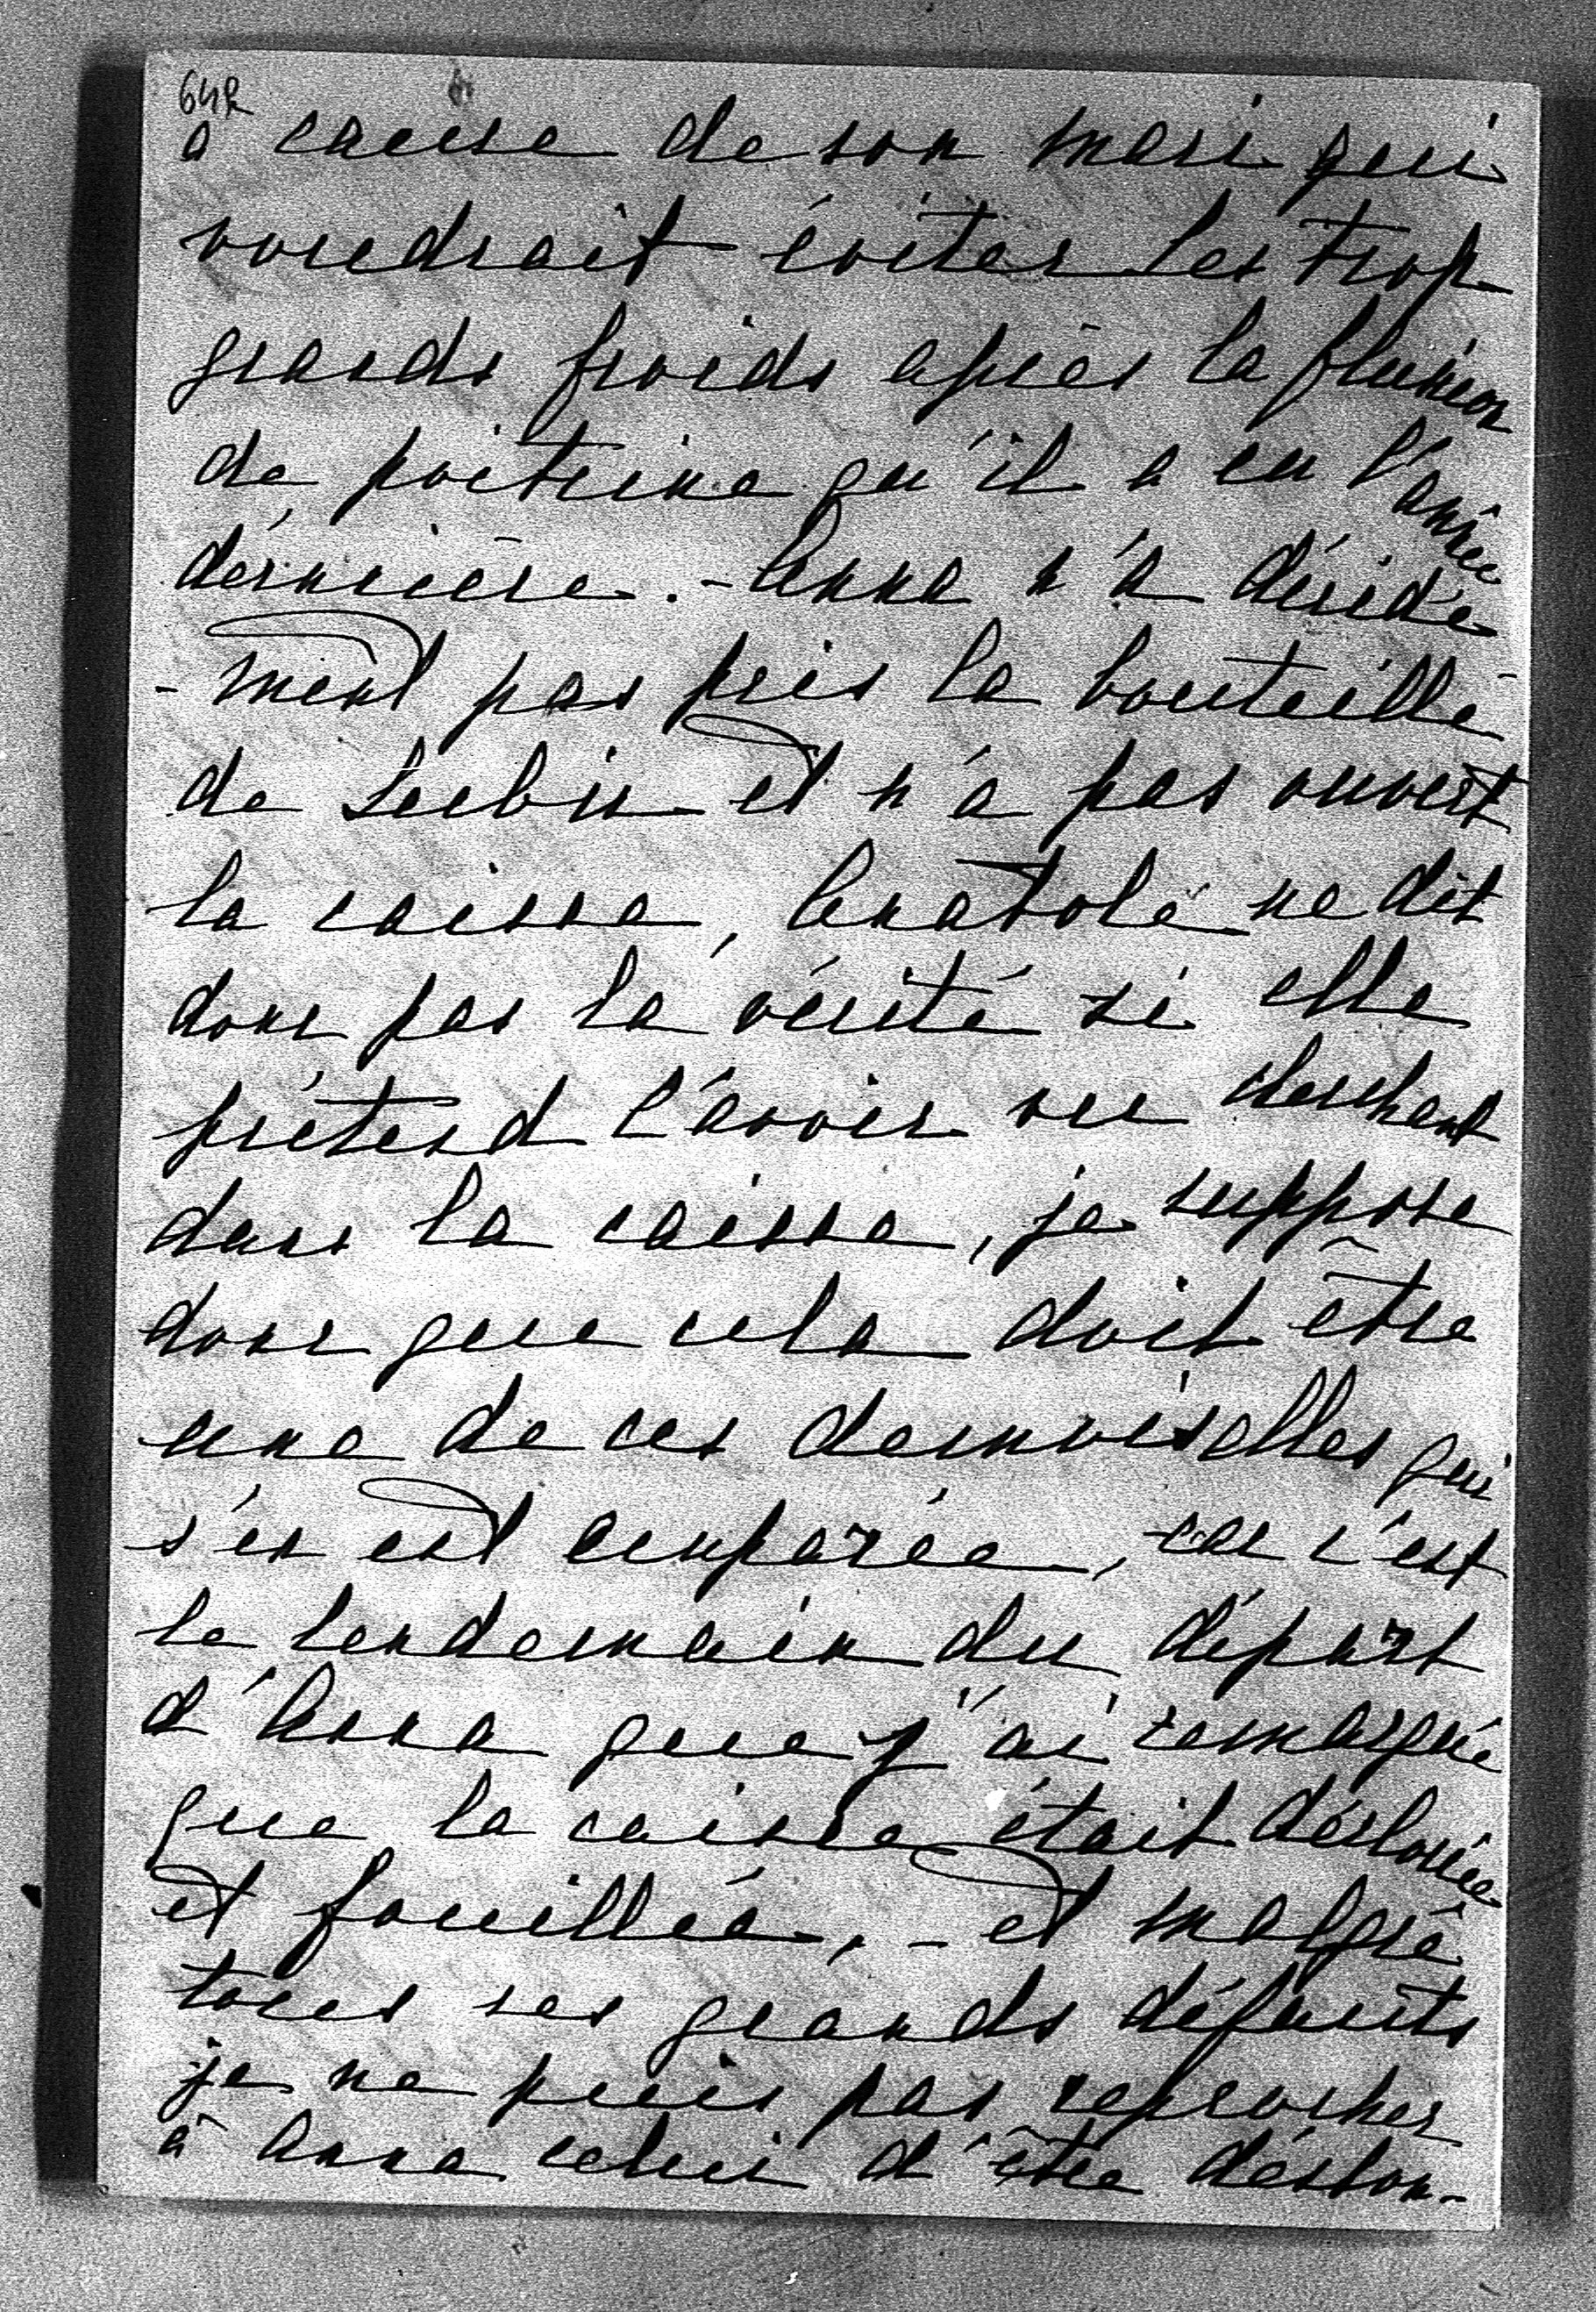 64R
à cause de son mari qui
voudrait éviter les trop
grands froids après la fluxion
de poitrine qu'il a eu l'année
dérnière. - Anna n'a décidé-
- ment pas pris la bouteille
de et n'a pas ouvert
la caisse, Anatole ne dit
donc pas la vérité si elle
prétend l'avoir vu cherchant
dans la caisse, je suppose
donc que cela doit être
une de ces demoiselles qui
s'en est emparée, car c'est
le lendemain du départ
d'Anna que j'ai remarqué
que la caisse était déclouée
et fouillée, - et malgré
tous ses grands défauts
je ne puis pas reprocher
à Anna celui d'être